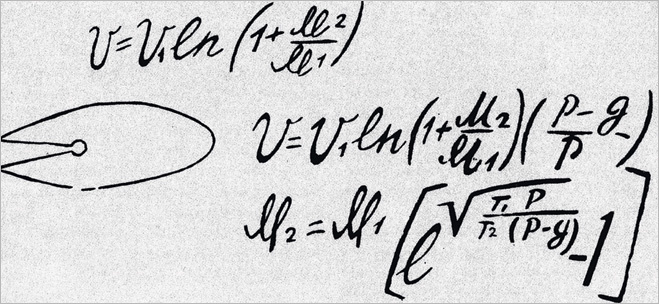 V=V₁ln(1+M₂/M₁)
V=V₁ln(1+M₂/M₁)(P-g/P)
M₂=M₁[e√(T₁ P/T₂ (P-g))-1]